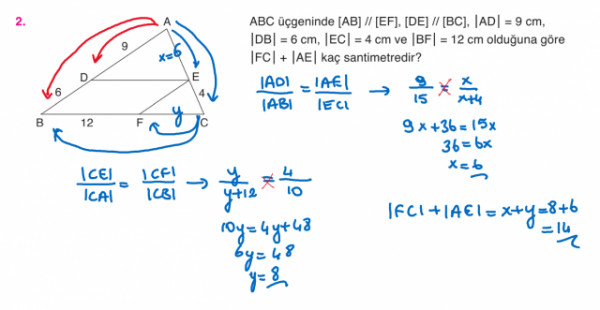 2.
ABC üçgeninde [AB] // [EF], [DE] // [BC], |AD| = 9 cm,
|DB| = 6 cm, |EC| = 4 cm ve |BF| = 12 cm olduğuna göre
|FC| + |AE| kaç santimetredir?
A
9
x=6
D
E
6
4
y
B
12
F
C
|AD|/|AB| = |AE|/|EC| → 9/15 = x/x+4
9x+36=15x
36=6x
x=6
|CE|/|CA| = |CF|/|CB| → y/y+12 = 4/10
10y=4y+48
6y=48
y=8
|FC|+|AE|=x+y=8+6
=14